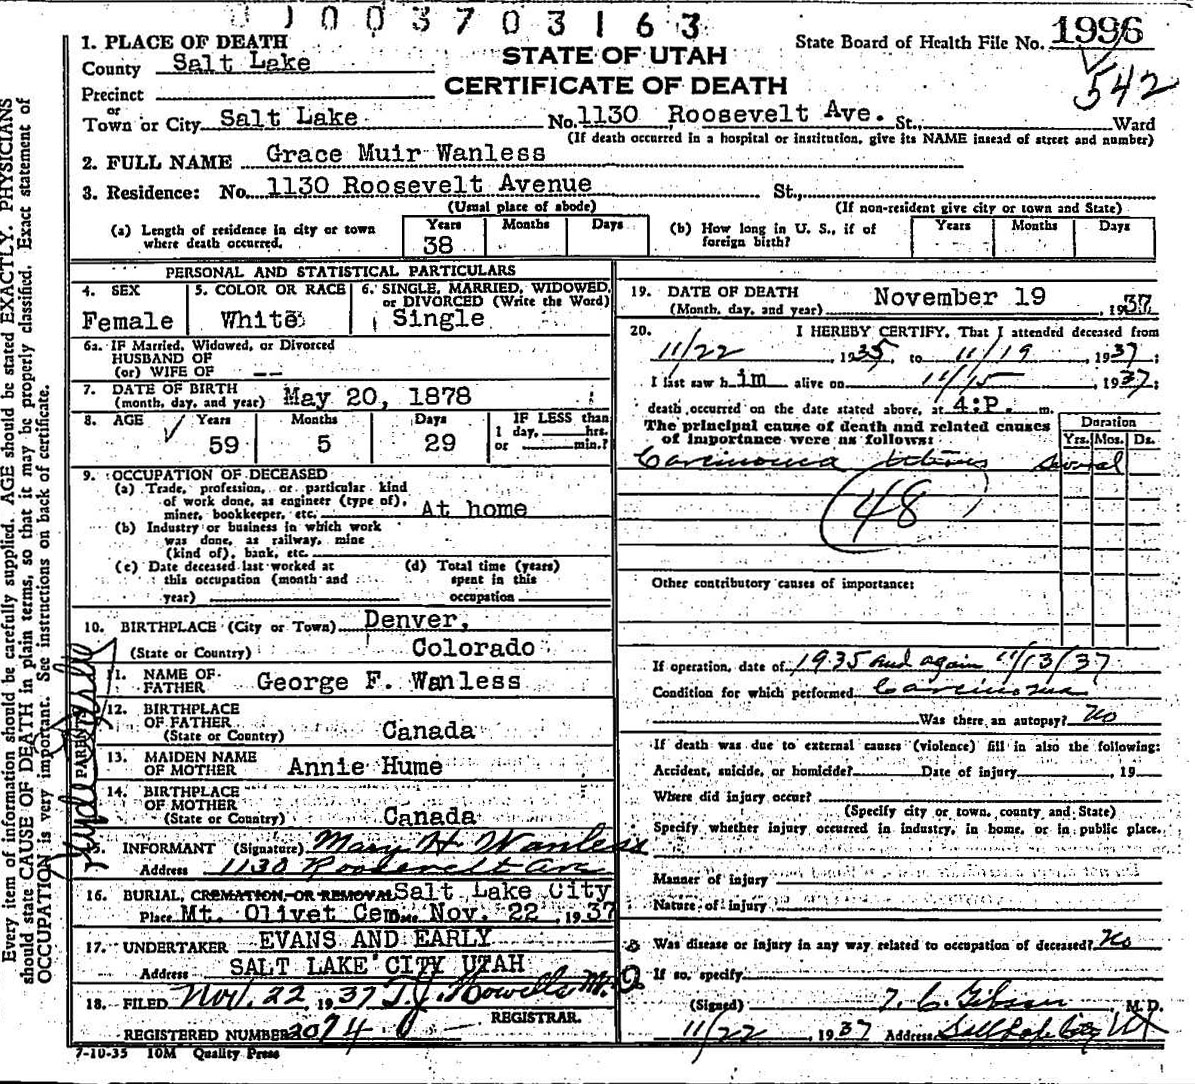 0 0 0 0 3 7 0 3 1 6 3
1. PLACE OF DEATH
County Salt Lake
STATE OF UTAH
CERTIFICATE OF DEATH
State Board of Health File No. 1996
542
Precinct
or
Town or City Salt Lake No. 1130 Roosevelt Ave. St., Ward
(If death occurred in a hospital or institution, give its NAME insead of street and number)
2. FULL NAME Grace Muir Wanless
3. Residence: No. 1130 Roosevelt Avenue St.,
(Usual place of abode) (If non-resident give city or town and State)
(a) Length of residence in city or town where death occurred. Years 38 Months Days
(b) How long in U. S., if of foreign birth? Years Months Days
PERSONAL AND STATISTICAL PARTICULARS
4. SEX Female
5. COLOR OR RACE White
6. SINGLE, MARRIED, WIDOWED, or DIVORCED (Write the Word) Single
6a. IF Married, Widowed, or Divorced
HUSBAND OF
(or) WIFE OF --
7. DATE OF BIRTH
(month, day, and year) May 20, 1878
8. AGE Years 59 Months 5 Days 29 IF LESS than 1 day, hrs. or min.?
9. OCCUPATION OF DECEASED
(a) Trade, profession, or particular kind
of work done, as engineer (type of),
miner, bookkeeper, etc. At home
(b) Industry or business in which work
was done, as railway, mine
(kind of), bank, etc.
(c) Date deceased last worked at
this occupation (month and
year)
(d) Total time (years)
spent in this
occupation
10. BIRTHPLACE (City or Town) Denver,
(State or Country) Colorado
11. NAME OF
FATHER George F. Wanless
12. BIRTHPLACE
OF FATHER
(State or Country) Canada
13. MAIDEN NAME
OF MOTHER Annie Hume
14. BIRTHPLACE
OF MOTHER
(State or Country) Canada
PARENTS
15. INFORMANT (Signature) Mary H Wanless
Address 1130 Roosevelt Ave
16. BURIAL, CREMATION, OR REMOVAL Salt Lake City
Place Mt. Olivet Cem. Nov. 22, 1937
17. UNDERTAKER EVANS AND EARLY
Address SALT LAKE CITY UTAH
18. FILED Nov. 22 1937 T. J. Howells M.D.
REGISTRAR.
REGISTERED NUMBER 2074
7-10-35 10M Quality Press
19. DATE OF DEATH
(Month, day, and year) November 19, 1937
20. I HEREBY CERTIFY, That I attended deceased from
11/22, 1935 to 11/19, 1937;
I last saw him alive on 11/15, 1937;
death occurred on the date stated above, at 4:P. m.
The principal cause of death and related causes
of importance were as follows:
Duration
Yrs. Mos. Ds.
Carcinoma uterus several
(48)
Other contributory causes of importance:
If operation, date of 1935 and again 11/13/37
Condition for which performed Carcinoma
Was there an autopsy? No
If death was due to external causes (violence) fill in also the following:
Accident, suicide, or homicide? Date of injury, 19
Where did injury occur?
(Specify city or town, county and State)
Specify whether injury occurred in industry, in home, or in public place.
Manner of injury
Nature of injury
Was disease or injury in any way related to occupation of deceased? No
If so, specify
(Signed) T. C. Gibson M.D.
11/22, 1937 Address Salt Lake City Ut
Every item of information should be carefully supplied. AGE should be stated EXACTLY. PHYSICIANS
should state CAUSE OF DEATH in plain terms, so that it may be properly classified. Exact statement of
OCCUPATION is very important. See instructions on back of certificate.